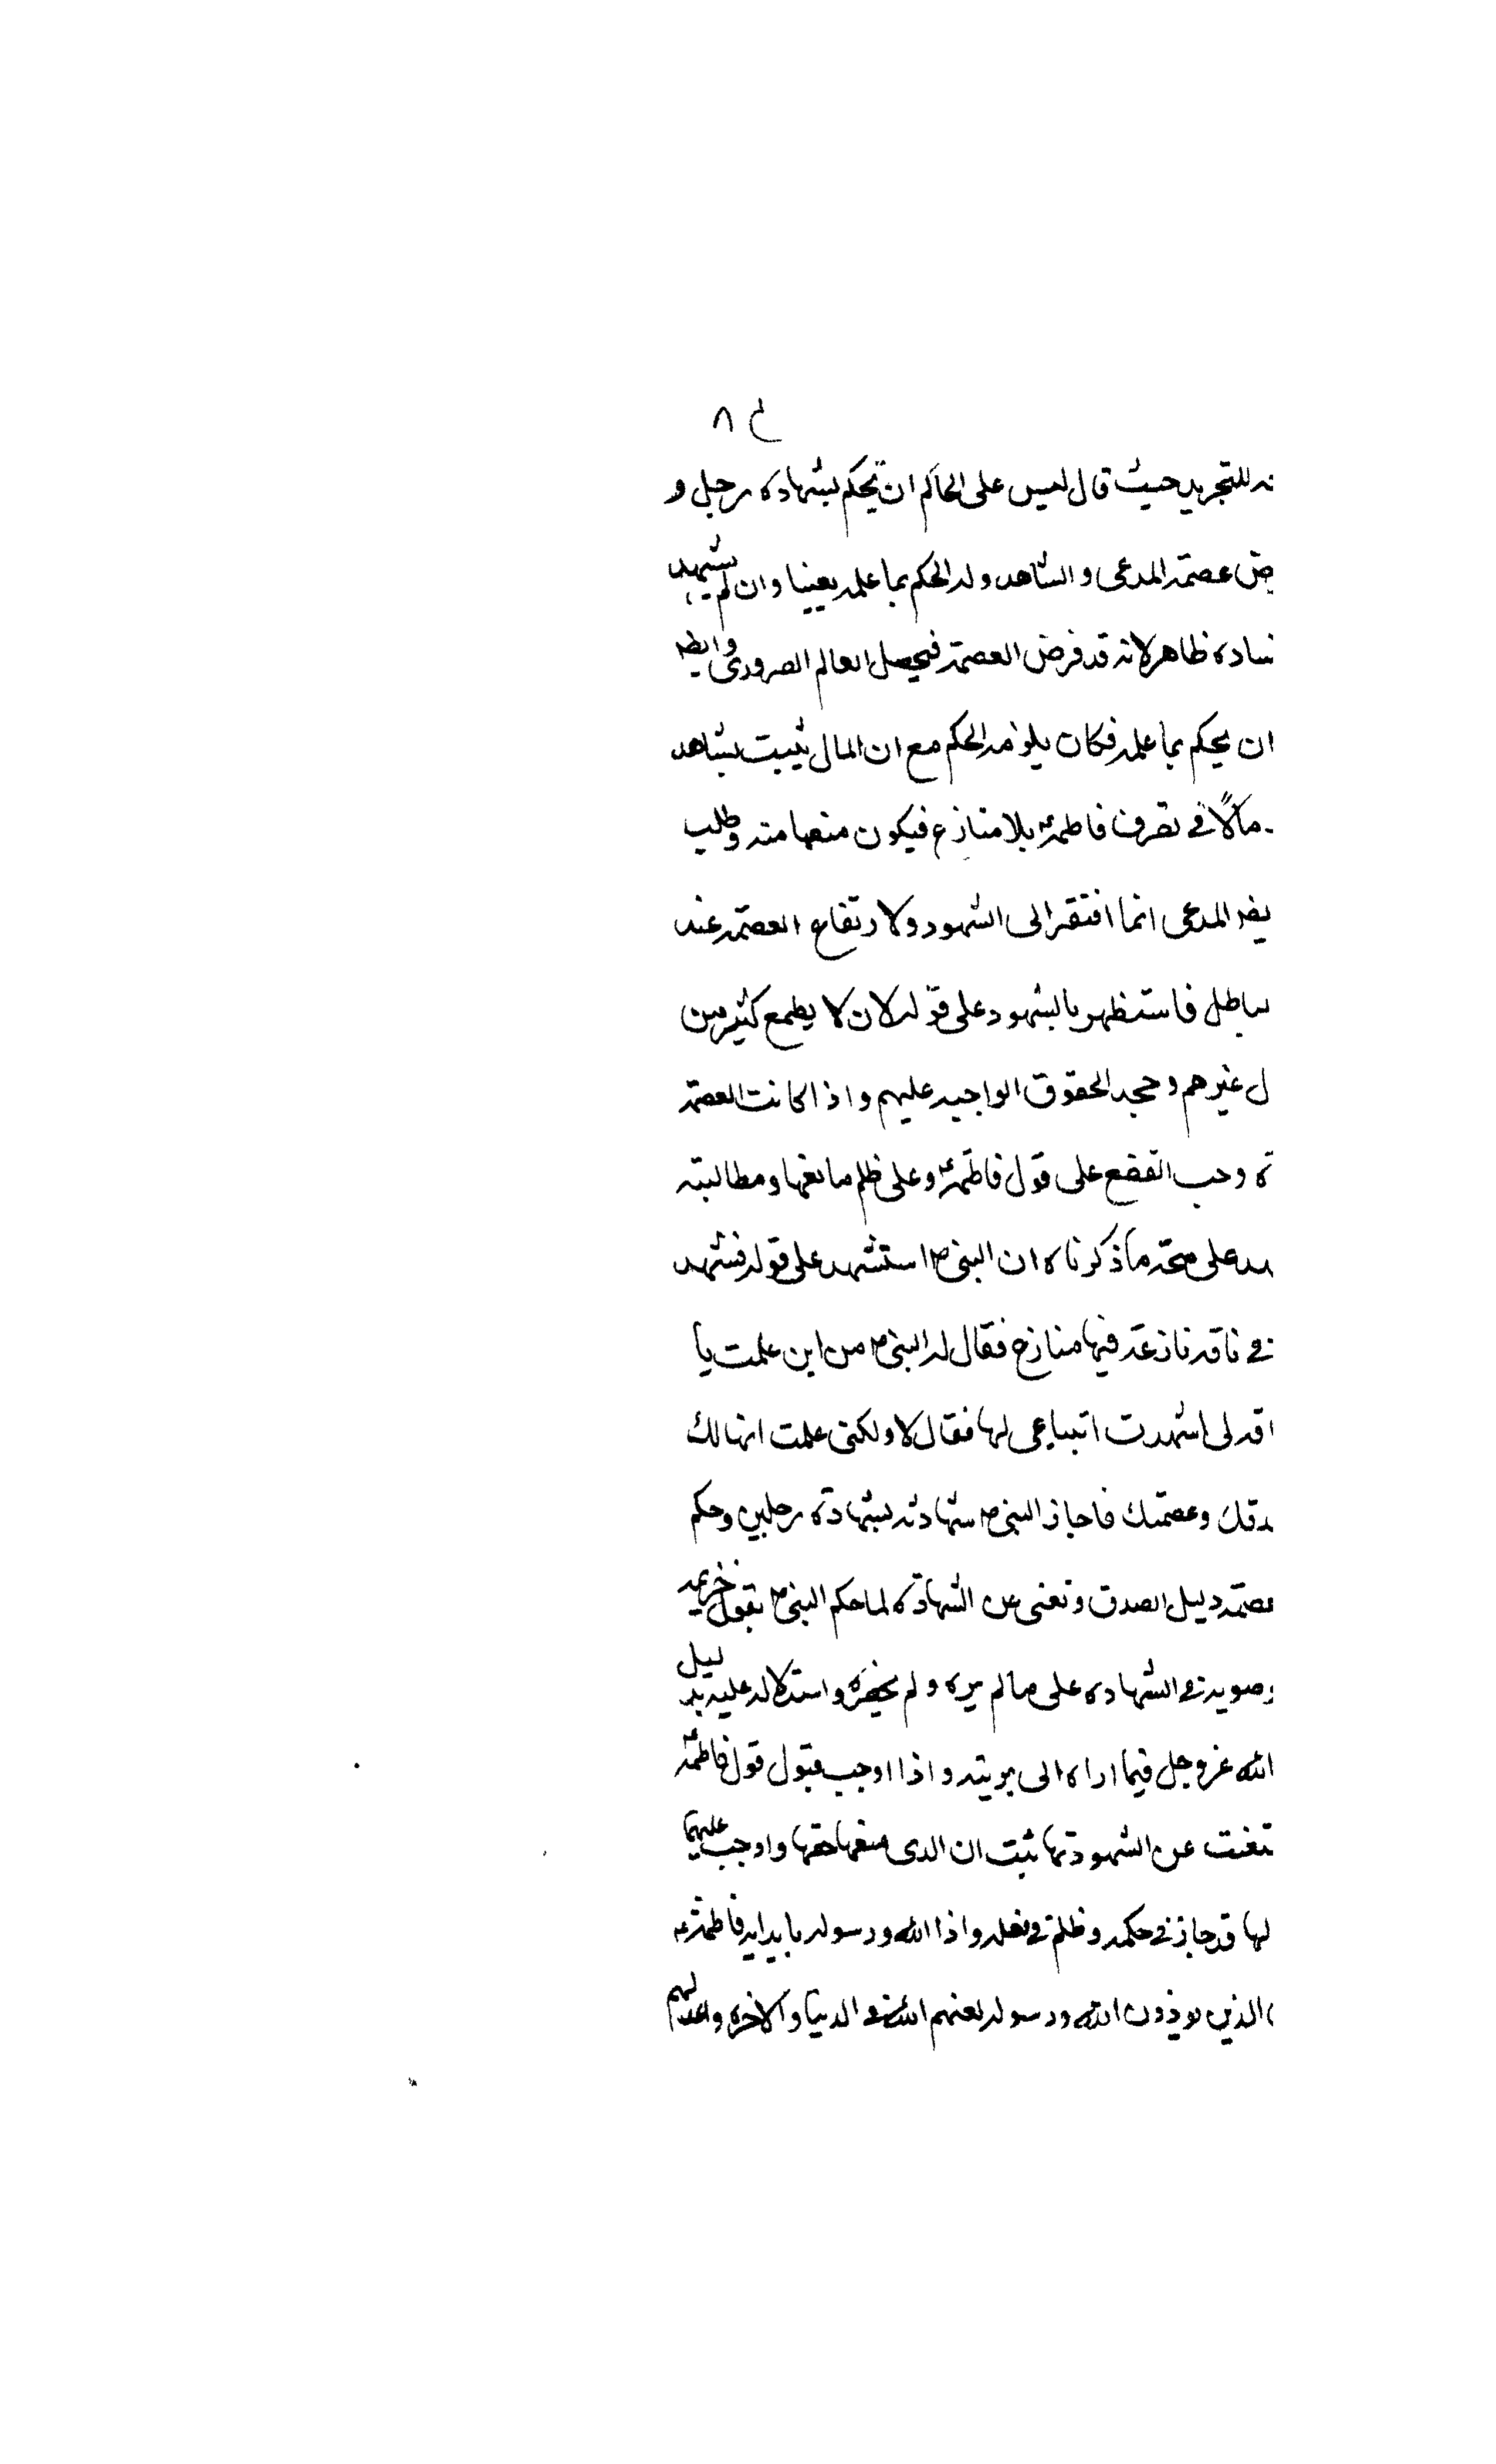 ٨
نه للتجريد حيث قال ليس على الحاكم ان يحكم بشهاده رجل و
ض عصمته المدعى والشاهد وله الحكم بما علمه يقينا وان لم يشهد
ساده ظاهر لانه قد فرض العصمته فيحصل العالم الضرورى وايضا
ان يحكم بما علمه فكان يلزمه الحكم مع ان المال يثبت بشاهد
مالًا في تصرف فاطمةؑ بلا منازع فيكون منعها منه وطلب
يضا المدعى انما افتقر الى الشهود ولا رتفاع العصمته عند
باطل فاستظهر بالشهود على قوله لان لا يطمع كثير من
ل غيرهم وجحد الحقوق الواجبه عليهم واذا كانت العصمته
ة وجب القطع على قول فاطمةؑ وعلى ظلم مانعها ومطالبته
هد على صحته ما ذكرناه ان النبىؐ استشهد على قوله فشهد
في ناقه نازعه فيها منازع فقال له النبىؐ من اين علمت يا
اقه لى اشهدت ابتياعى لها فقال لا ولكنى علمت انها لك
دقك وعصمتك فاجاز النبىؐ شهادته بشهادة رجلين وحكم
عصمته دليل الصدق وتغنى عن الشهادة لما حكم النبىؐ بقول خزيمه
وصوبه في الشهاده على مالم يره ولم يحضره واستدلاله عليه بدليل
الله عز وجل فيما اداه الى بريته واذا اوجب قبول قول فاطمةؑ
تغنت عن الشهود تها ثبت ان الذى منعها حقها واوجب عليها
لها قد جاز في حكمه وظلم في فعله واذا الله ورسوله بايدايه فاطمةؑ
الذين يوذون الله ورسوله لعنهم الله في الدنيا والاخره واعد لهم